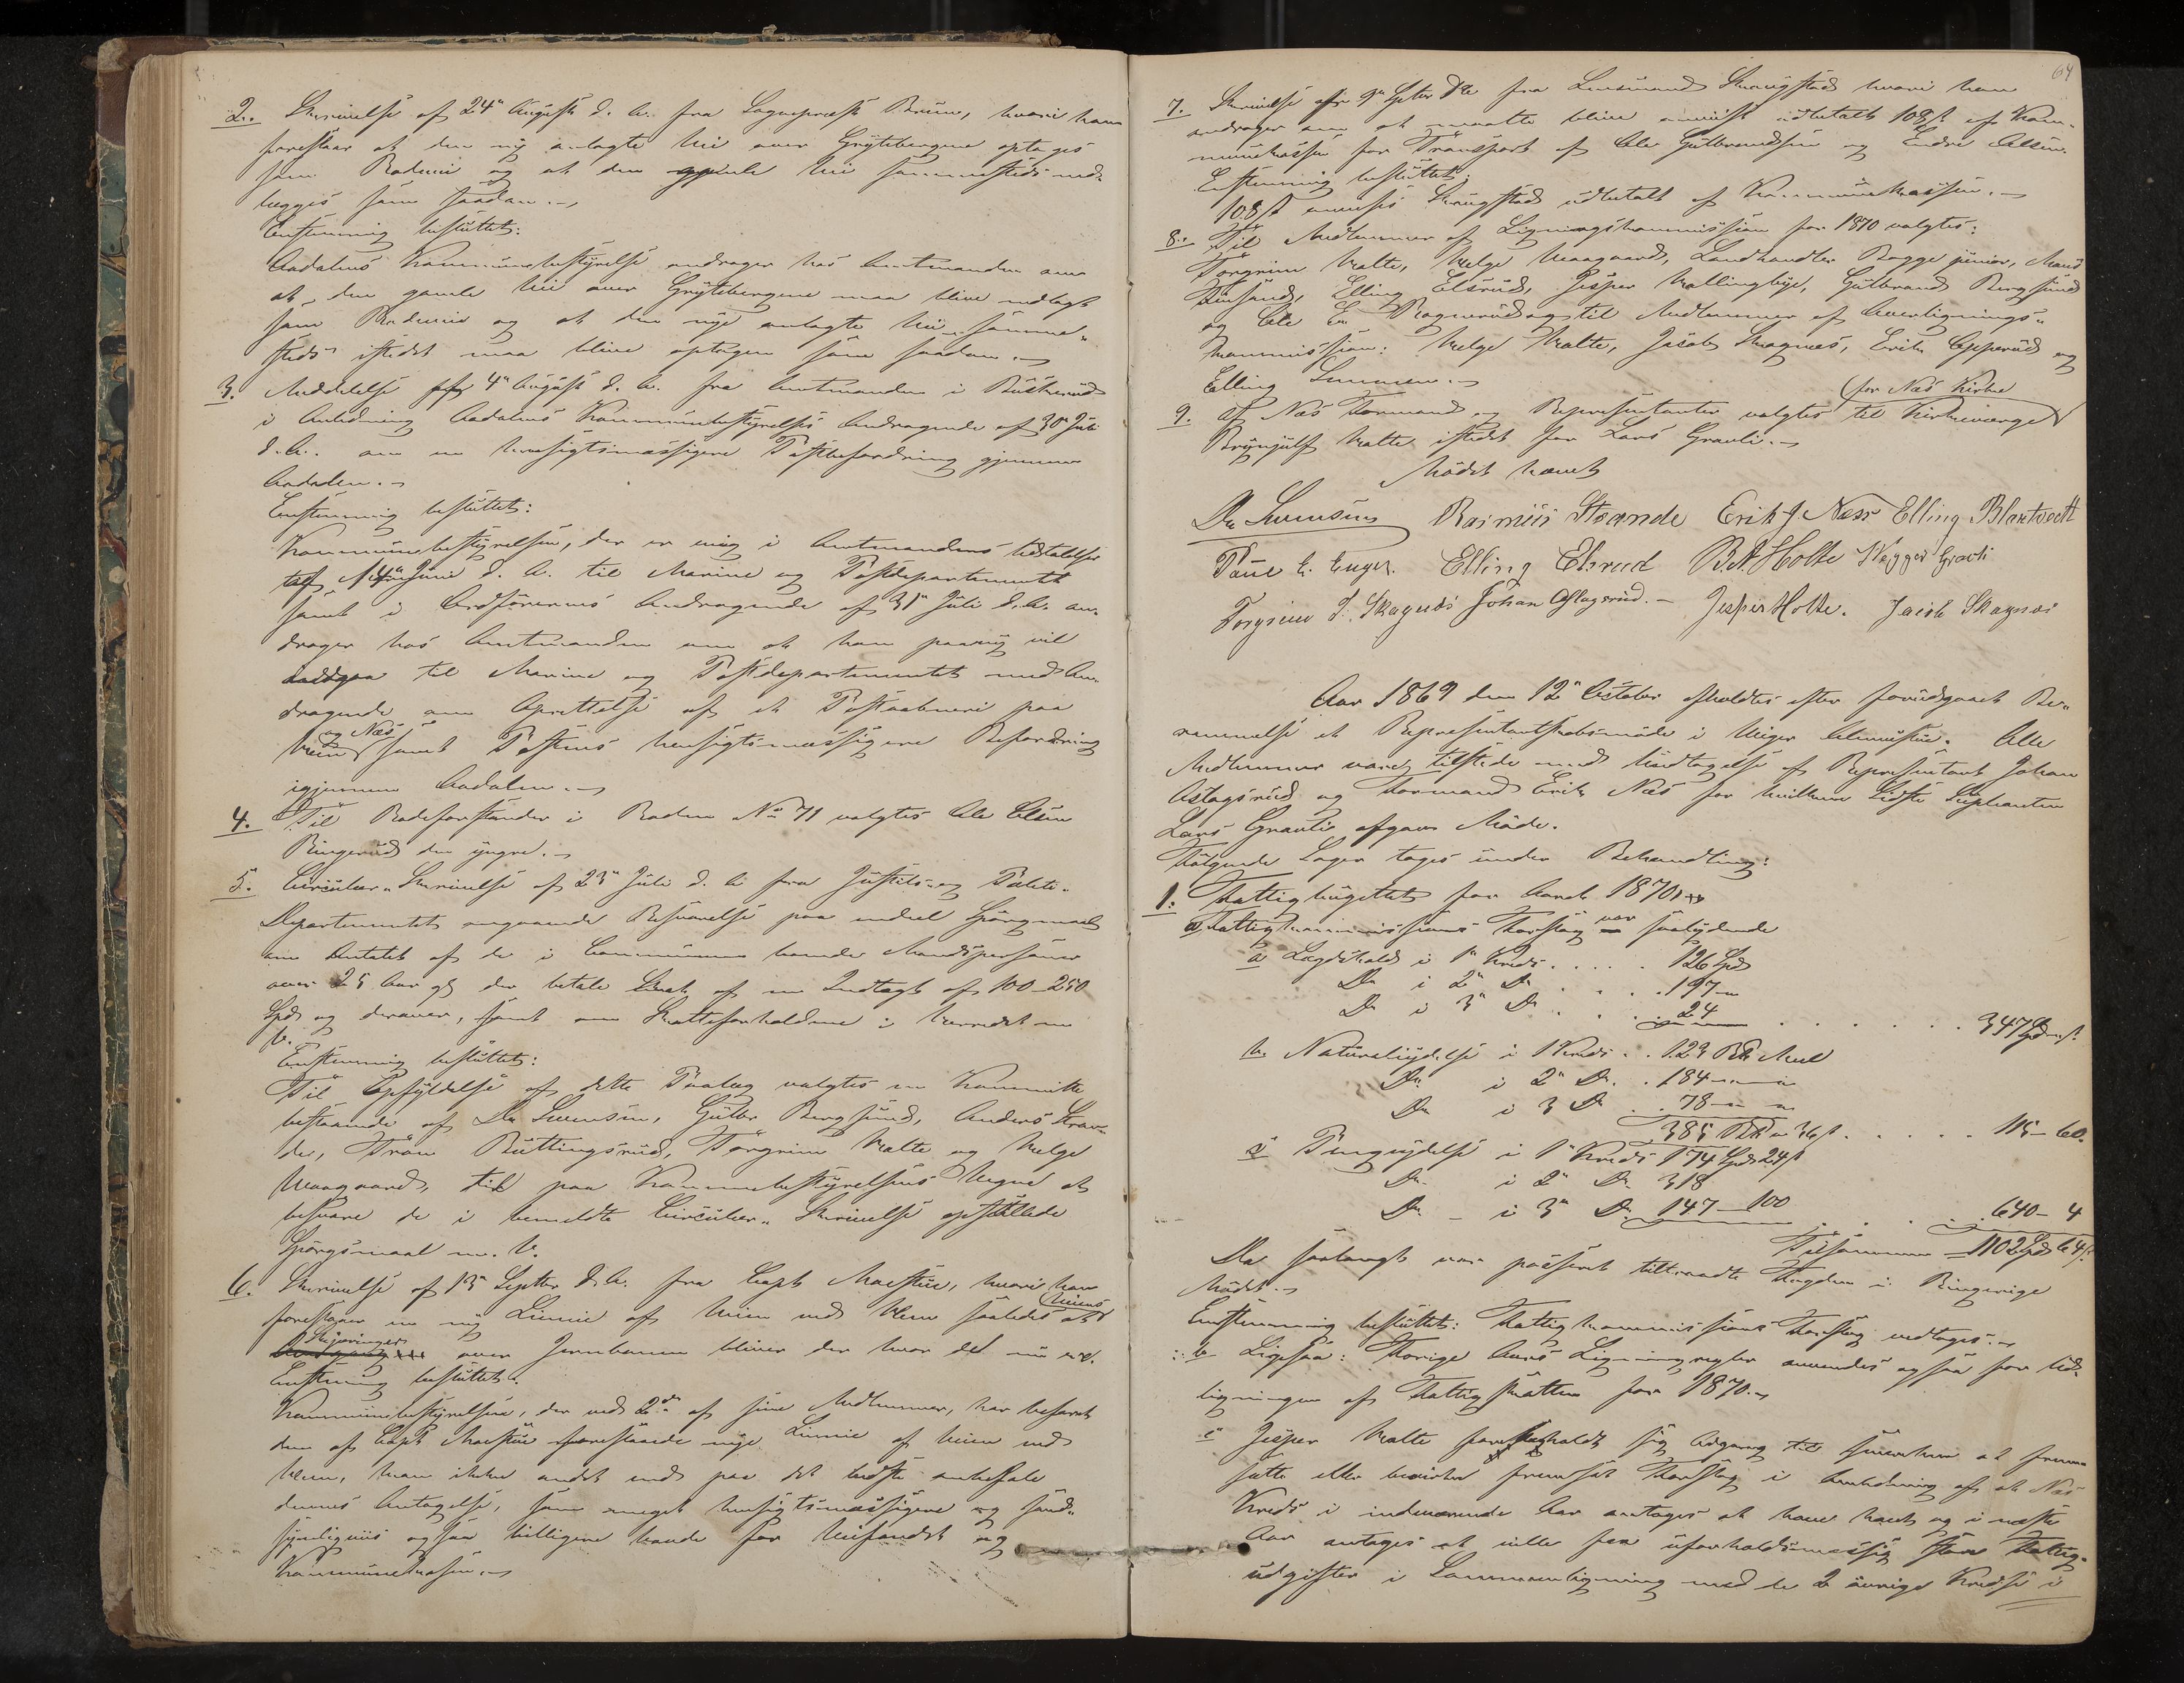 2. Skrivelse af 24de August d. A. fra Sogneprest Bruun, hvori han
foreslaar at den ny anlagte Vei over Grytebergene optages
som Rodevei og at den gamle Vei sammesteds ned-
lægges som saadan.
Enstemmig besluttet:
Aadalens Kommunebestyrelse andrager hos Amtmanden om
at den gamle Vei over Grytebergene maa blive nedlagt
som Rodevei og at den nye anlagte Vei samme-
steds istedet maa blive optagen som saadan.
3. Meddelelse af 4de August d. A. fra Amtmanden i Buskerud
i Anledning Aadalens Kommunebestyrelses Andragende af 30te Juli
d. A. om en hensigtsmæssigere Postbefordring gjennem
Aadalen.
Enstemmig besluttet:
Kommunebestyrelsen, der er enig i Amtmandens Udtalelser
af 14de Juni d. A. til Marine og Postdepartementet
samt i Ordførerens Andragende af 31te Juli d. A. an-
drager hos Amtmanden om at han paany vil
til Marine og Postdepartementet med An-
dragende om Oprettelse af et Postaabneri paa
Veien og Næs samt Postens hensigtsmæssigere Befordring
igjennem Aadalen.
4. Til Rodeforstander i Roden No 71 valgtes Ole Olsen
Ringerud den yngre.
5. Circulær-Skrivelse af 23de Juli d. A. fra Justits- og Politi-
Departementet angaaende Besvarelse paa endel Spørgsmaal
om Antallet af de i Communen boende Mandspersoner
over 25 Aar og der betale Skat af en Indtægt af 100-250
Spd og derover, samt om Skatteforholdene i Herredet m
v.
Enstemmig besluttet:
Til Opfyldelse af dette Paalæg valgtes en Kommitte
bestaaende af Da Svensen, Gulbr Bergsund, Anders Stran-
de, Trøn Buttingsrud, Torgrim Holte og Helge
Vaagaard, til paa Kommunebestyrelsens Vegne at
besvare de i bemeldte Circulær-Skrivelse opstillede
Spørgsmaal m. V.
6. Skrivelse af 13de Septbr d. A. fra Capt Moestue, hvori han
foreslaaer en ny Linnie af Veien ved Hen saaledes at Veiens
Skjæringer over Jernbanen bliver der hvor det nu er.
Enstemmig besluttet:
Kommunebestyrelsen, der ved 2de af sine Medlemmer, har befaret
den af Capt Moestue foreslaaede nye Linnie af Veien ved
Hen, kan ikke andet end paa det bedste anbefale
dennes Antagelse, som meget hensigtsmæssigere og sand-
synligvis ogsaa billigere baade for Veifondet og
Kommunekassen.
64
7. Skrivelse af 9de Septbr fra Lensmand Skougstad hvori han
andrager om at maatte blive anvist udbetalt 108 s af Kom-
munekassen for Transport af Ole Gulbrandsen og Endre Olsen.
Enstemmig besluttet:
108 s anvises Skougstad udbetalt af Kommunekassen.
8. Til Medlemmer af Ligningskommissionen for 1870 valgtes:
Torgrim Holte, Helge Vaagaard, Landhandler Bagge junior,
Elling Elsrud, Jesper Hallingbye, Gulbrand Bergsund
og Ole Ragnerud og til Medlemmer af Overlignings-
kommission: Helge Holte, Jacob Skagnæs, Erik Opperud og
Elling
9. Af Næs Formand og Repræsentanter valgtes til Kirkeværge for Næs Kirke
Brynjulf Holte istedet for Lars Gravli.
Mødet hævet
Da Svensen Rasmus Strande Erik J. Næss Elling Blaktvedt
Poul C. Enger. Elling Elsrud B. A. Holte Vegger Gravli
Torgrim P. Skagnæs Johan Aslagsrud. Jesper Holte. Jacob Skagnæs
Aar 1869 den 12te October afholdtes efter forudgaaet Be-
rammelse et Repræsentantskabsmøde i Viger Almuestue. Alle
Medlemmer vare tilstede med Undtagelse af Repræsentant Johan
Aslagsrud og Formand Erik Næs for hvilken sidste Suppleanten
Lars Gravlie afgav Møde.
Følgende Sager toges under Behandling:
1. Fattigbugettet for Aaret 1870
a, Fattigkommissionens Forslag var saalydende
a Lægdehold i 1ste Kreds . . . . . 126 Spd
Do i 2den Do . . . . 197 "
Do i 3die Do . . . . 24 . . . . . . . 347 Spd
b. Naturalydelse i 1 Kreds . . 123 Mel
Do i 2den Do . . 184 " "
Do i 3 Do . . 78 " "
385 a 36 s . . . . . 115 - 60.
c Pengeydelse i 1ste Kreds 174 Spd 24 s
Do i 2den Do 318
Do i 3die Do 147 - 100 . . . . . 640 - 4
Tilsammen 1102 Spd 64 s.
Da saalangt var passeret tiltraadte Fogden i Ringerige
Mødet.
Enstemmig besluttet: Fattigkommissionens Forslag vedtages.
b. Ligesaa: Forrige Aars Ligningsregler anvendes ogsaa for Ud-
ligningen af Fattigskatten for 1870.
c Jesper Holte forbeholdt sig Adgang til senerhen at frem-
sætte eller bevirke fremsat Forslag i Anledning af at Næs
Kreds i indeværende Aar antages at have havt og i næste
Aar antages at ville faa uforholdsmæssig store Fattig-
udgifter i Sammenligning med de 2 øvrige Kredse i